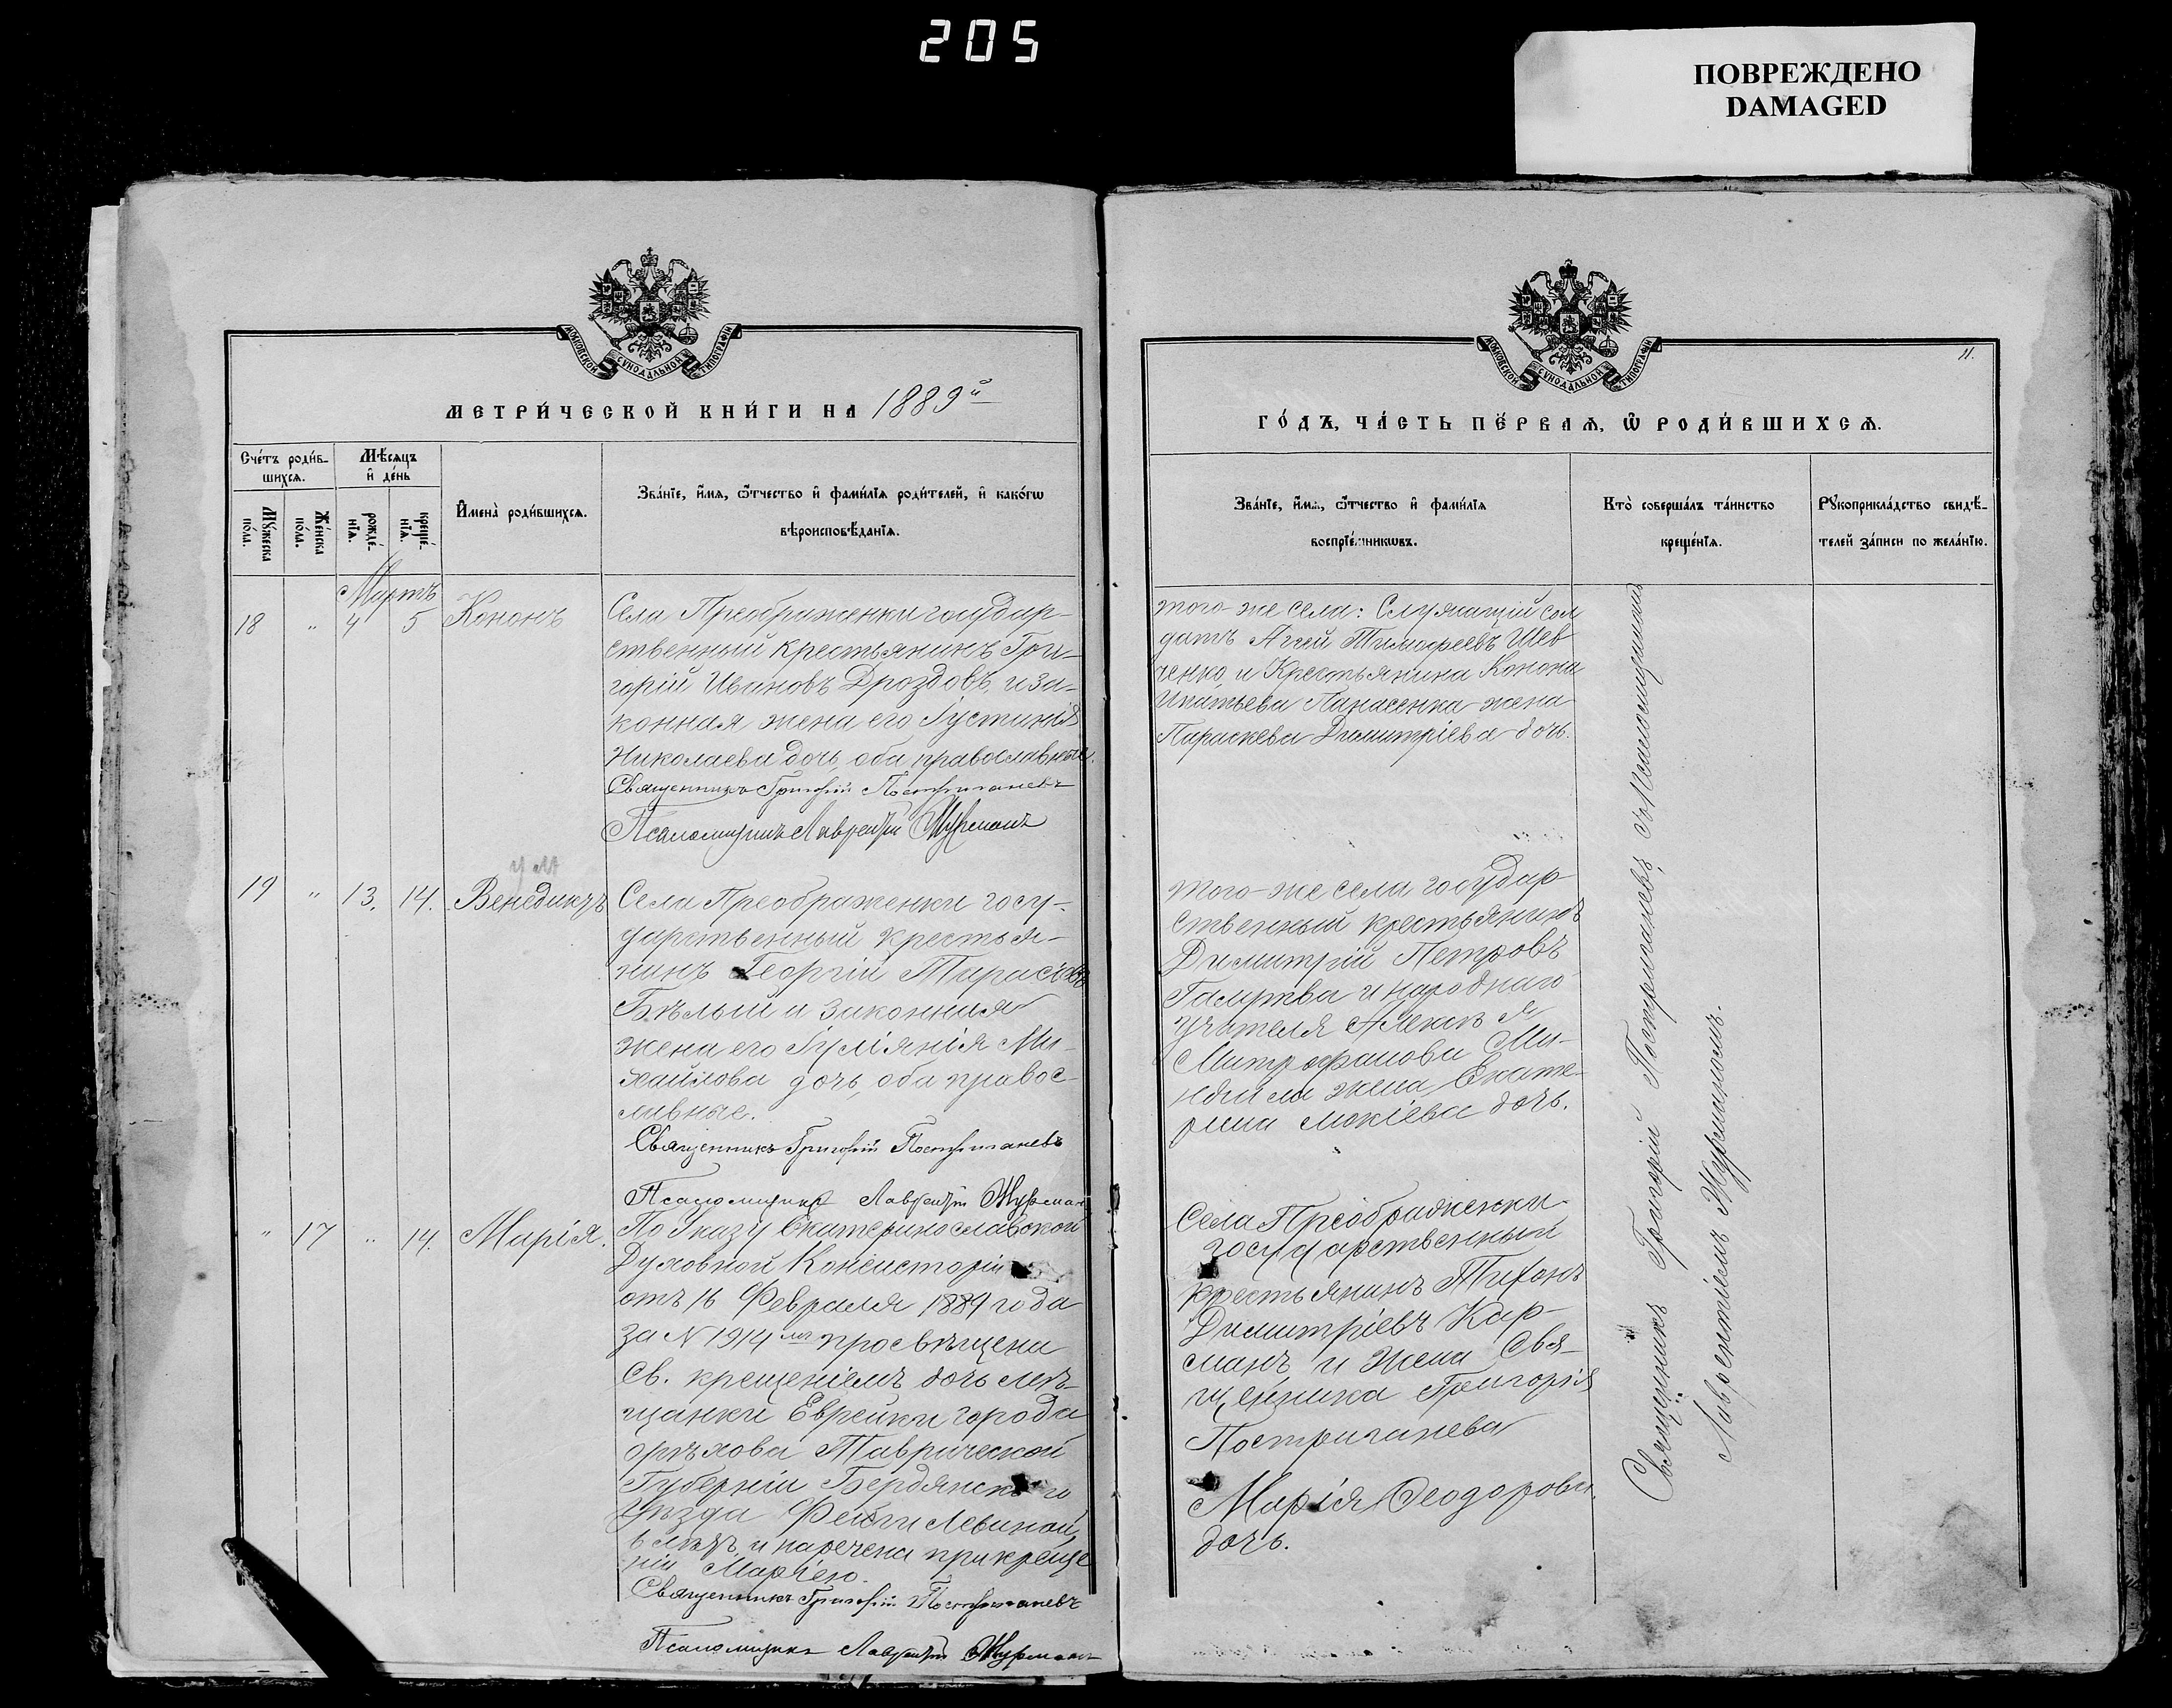 205
ПОВРЕЖДЕНО
DAMAGED
МОСКОВСКОЙ СѴНОДАЛЬНОЙ ТИПОГРАФІИ
МЕТРИ́ЧЕСКОЙ КНИ́ГИ НА 1889й
Сче́тъ роди́в-
шихсѧ.
Мѣ́сяцъ
и҆ де́нь
Мꙋ́жеска
по́ла.
Же́нска
по́ла.
рожде́-
нїѧ.
креще́-
нїѧ.
И҆мена̀ роди́вшихсѧ.
Зва́нїе, и҆́мѧ, ѻ҆́тчество и҆ фами́лїѧ роди́телей, и҆ како́гѡ
вѣроисповѣ́данїѧ.
Мартъ
18 " 4 5 Кононъ
Села Преображенки государ-
ственный крестьянинъ Гри-
горій Ивановъ Дроздовъ, и за-
конная жена его Іустинія
Николаева дочь, оба православные.
Священникъ Григорій Постриганевъ
Псаломщикъ Лаврентій Журманъ
ум
19 " 13. 14. Венедиктъ
Села Преображенки госу-
дарственный крестья-
нинъ Георгій Тарасовъ
Бѣлый и законная
жена его Іуліанія Ми-
хайлова дочь, оба правос-
лавные.
Священникъ Григорій Постриганевъ
Псаломщикъ Лаврентій Журман
" 17 " 14. Марія.
По Указу Екатеринославской
Духовной Консисторіи
отъ 16 Февраля 1889 года
за N 1914 мъ просвѣщена
Св. крещеніемъ дочь мѣ-
щанки Еврейки города
Орѣхова Таврической
Губерніи Бердянскаго
Уѣзда Фейги Левиной,
лѣтъ, и наречена при креще
ніи Маріею.
Священникъ Григорій Постриганевъ
Псаломщикъ Лаврентій Журманъ
МОСКОВСКОЙ СѴНОДАЛЬНОЙ ТИПОГРАФІИ
11.
ГО́ДЪ, ЧА́СТЬ ПЕ́РВАѦ, Ѡ҆ РОДИ́ВШИХСѦ.
Зва́нїе, и҆́мѧ, ѻ҆́тчество и҆ фами́лїѧ
воспрїе́мникѡвъ.
Кто̀ соверша́лъ та́инство
креще́нїѧ.
Рꙋкоприкла́дство свидѣ́-
телей за́писи по жела́нїю.
того-же села: Служащій сол
датъ Аггей Тимофеевъ Шев
ченко, и Крестьянина Конона
Игнатьева Панасенка жена
Параскева Димитріева дочь.
того-же села государ-
ственный крестьянинъ
Димитрій Петровъ
и народнаго
учителя Алексѣя
Митрофанова
жена, Екате-
рина Мокіева дочь.
Села Преображенки
государственный
крестьянинъ Тихонъ
Димитріевъ Кар-
манъ и жена Свя-
щенника Григорія
Постриганева
Марія Ѳеодорова
дочь.
Священникъ Григорій Постриганевъ съ Псаломщикомъ
Лаврентіемъ Журманомъ.